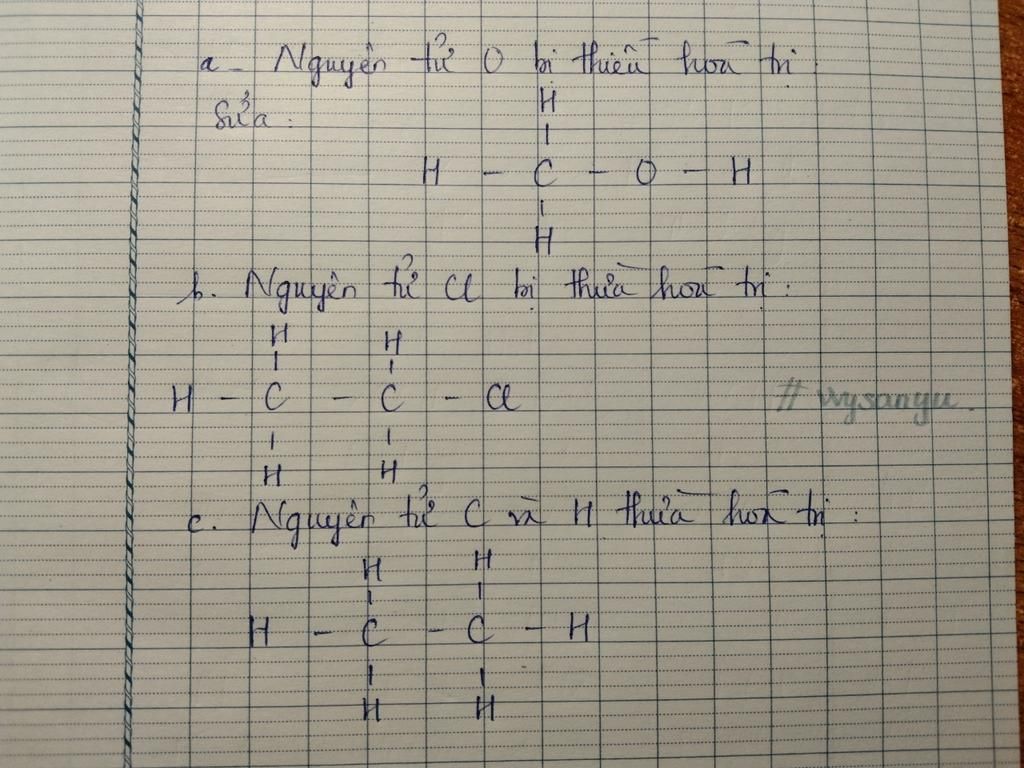 a - Nguyên tử O bị thiếu hoá trị.
Sửa:
H
|
H - C - O - H
|
H
b. Nguyên tử Cl bị thừa hoá trị:
H H
| |
H - C - C - Cl
| |
H H
# vysanyu.
c. Nguyên tử C và H thừa hoá trị:
H H
| |
H - C - C - H
| |
H H